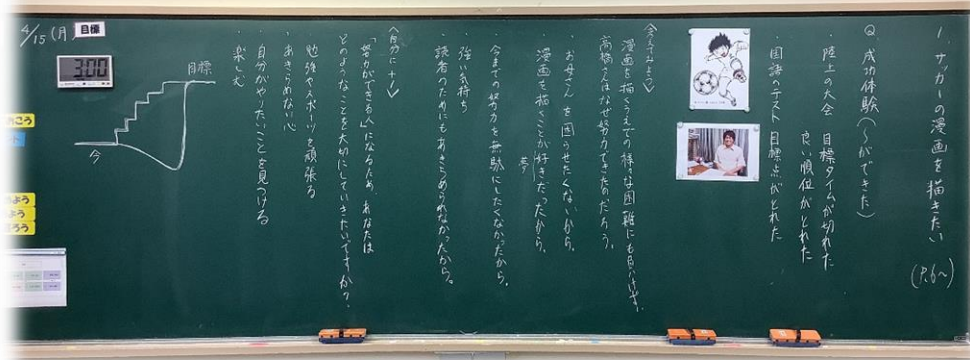 1. サッカーの漫画を描きたい (P.6〜)
Q 成功体験(〜ができた)
・陸上の大会 目標タイムが切れた
良い順位がとれた
・国語のテスト 目標点がとれた
漫画を描くうえでの様々な困難にも負けず、
高橋さんはなぜ努力できたのだろう。
・お母さんを困らせたくないから。
・漫画を描くことが好きだったから。
夢
・今までの努力を無駄にしたくなかったから。
強い気持ち
・読者のためにもあきらめられなかったから。
〈自分に+1〉
「努力ができる人」になるため、あなたは
どのようなことを大切にしていきたいですか?
・勉強やスポーツを頑張る
・あきらめない心
・自分がやりたいことを見つける
・楽しむ
目標
今
4/15(月)
目標
3:00